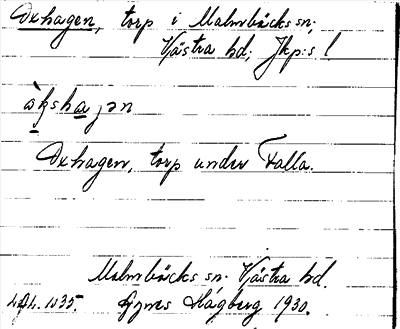 Oxhagen, torp i Malmbäcks sn;
Västra hd; Jkp:s l
Oxhagen, torp under Falla.
Malmbäcks sn. Västra hd.
Agnes Högberg 1930.